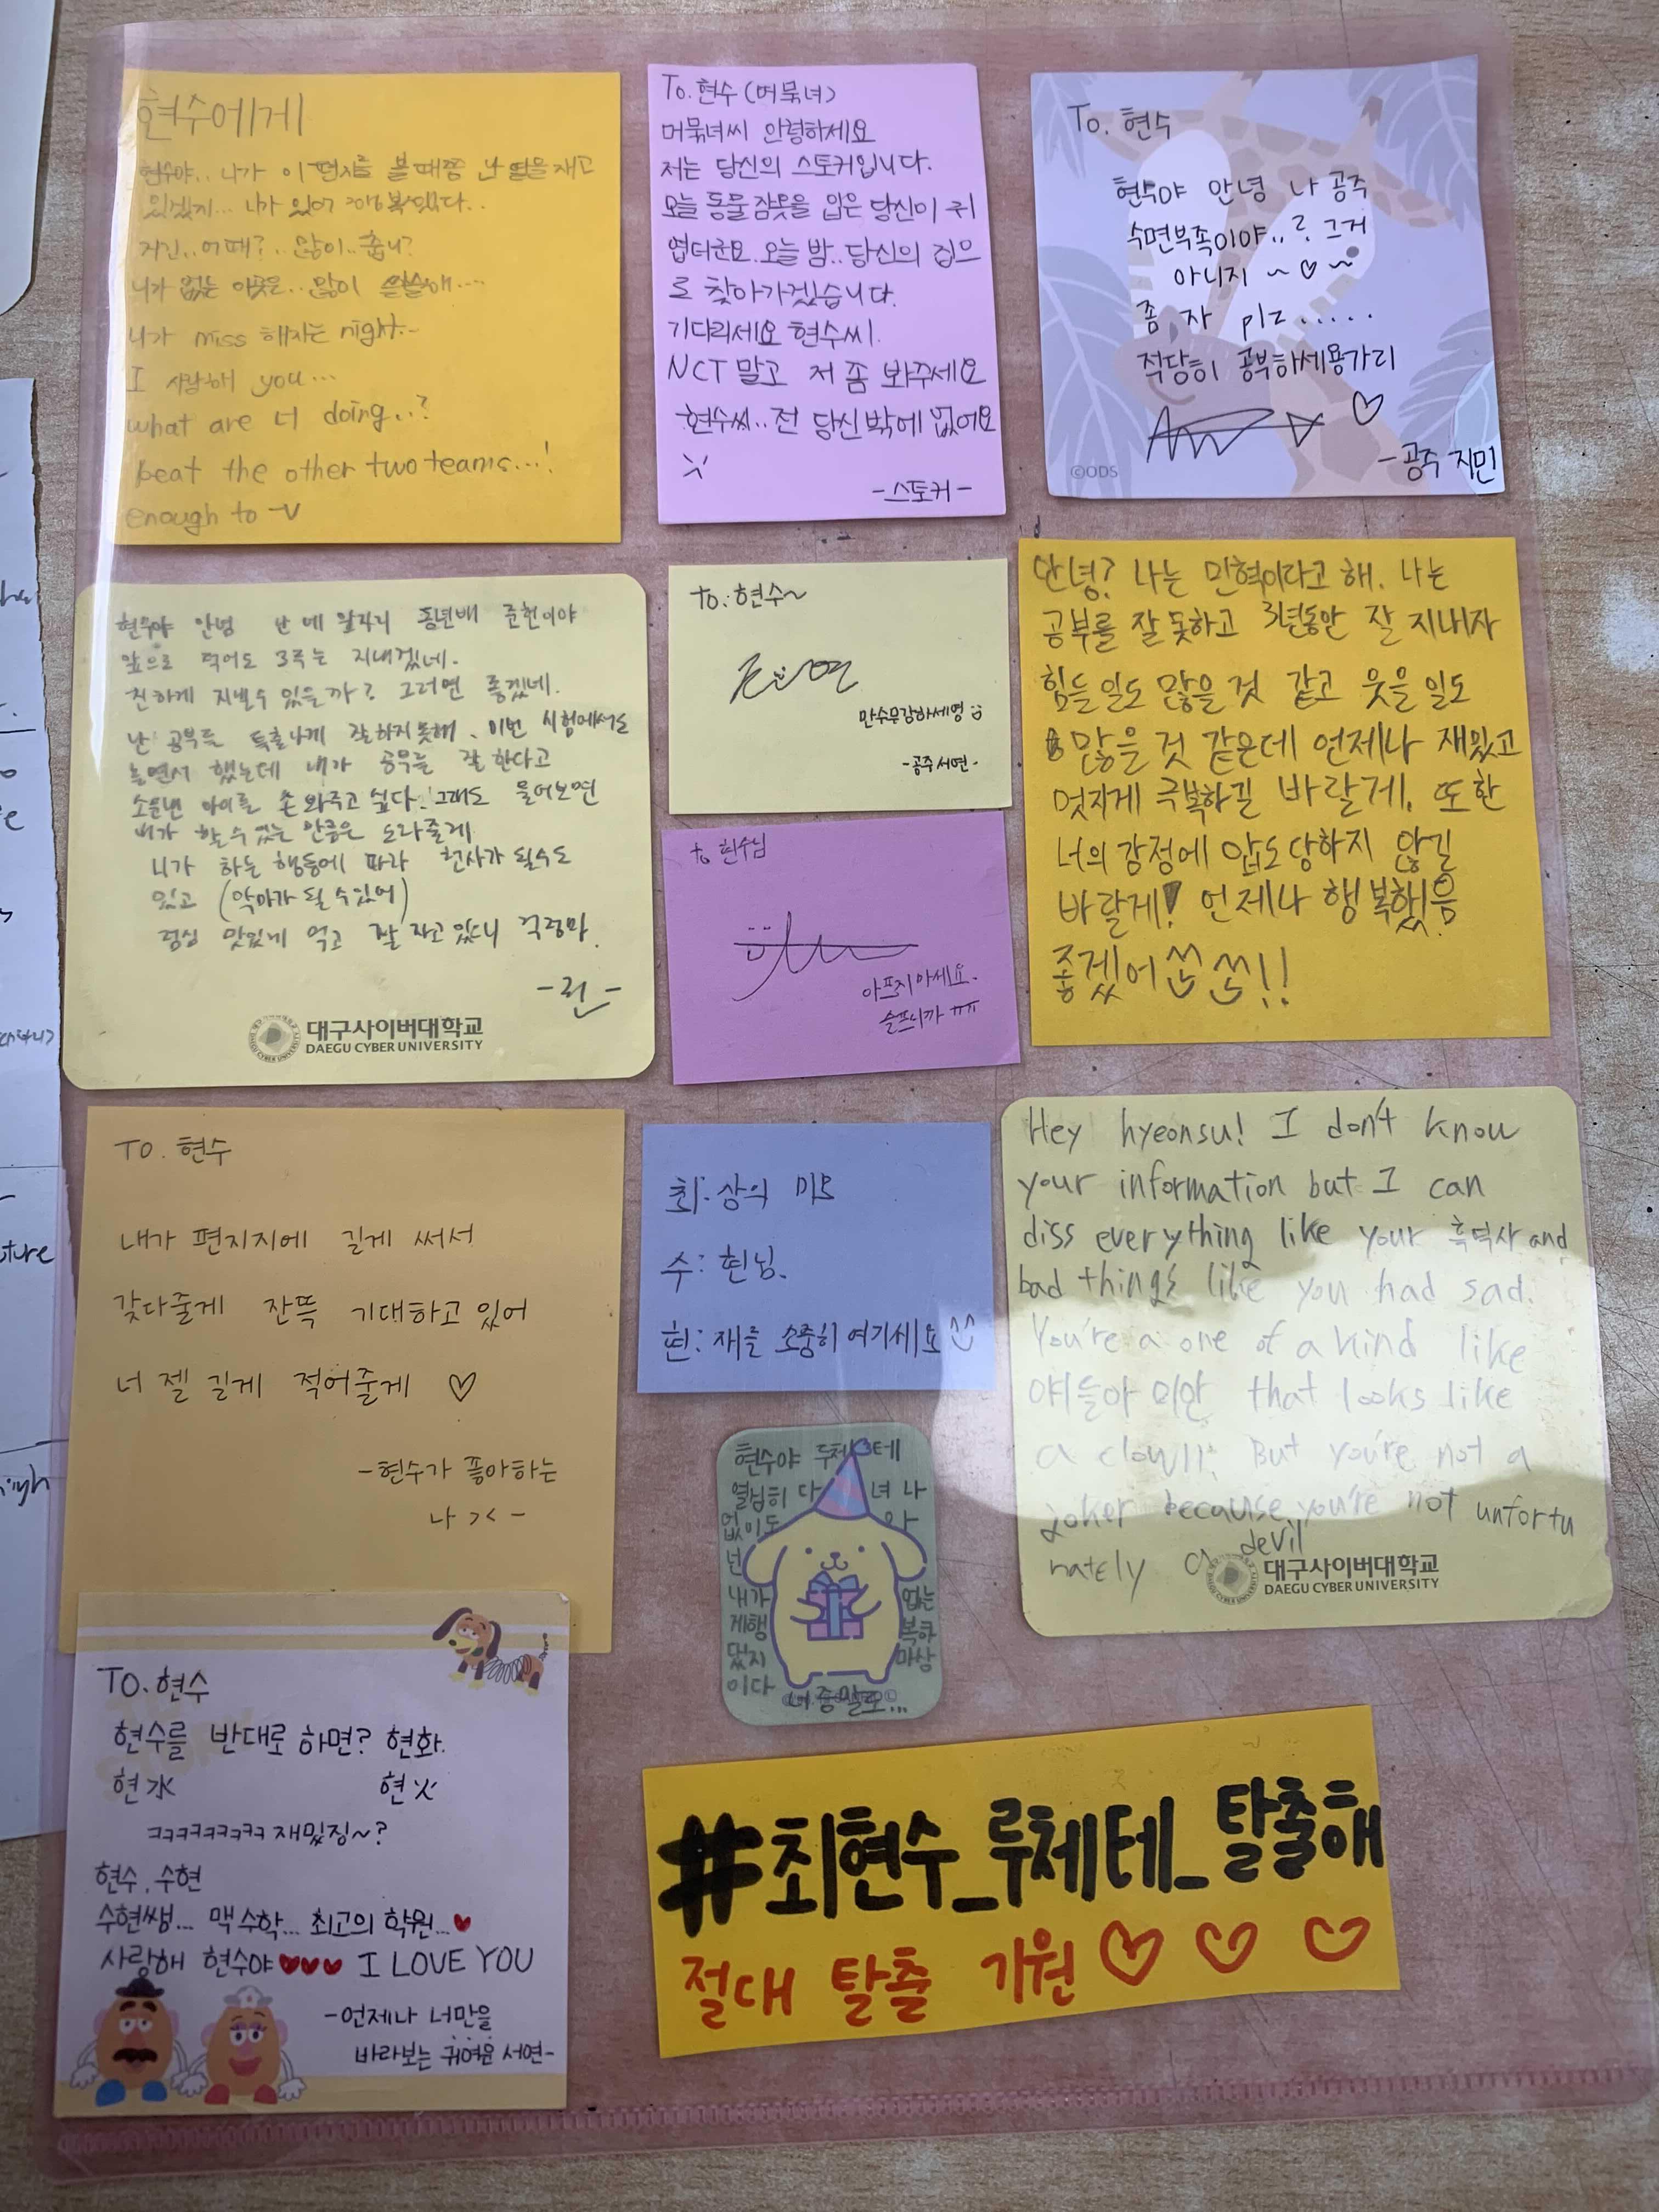 현수에게
현수야.. 니가 이 편지를 볼 때쯤 난 열을 재고
있겠지... 니가 있어 행복했다..
거긴..어때?..많이..춥니?
니가 없는 이곳은..많이 쓸쓸해....
니가 miss 해지는 night..
I 사랑해 you...
what are 너 doing..?
beat the other two teams...!
enough to -V
To.현수(머묶녀)
머묶녀씨 안령하세요
저는 당신의 스토커입니다.
오늘 동물잠옷을 입은 당신이 귀
엽더군요. 오늘 밤..당신의 집으
로 찾아가겠습니다.
기다리세요 현수씨.
NCT 말고 저 좀 봐주세요
현수씨..전 당신밖에 없어요
-스토커-
To. 현수
현수야 안녕 나 공주
수면부족이야..? 그거
아니지 ~♡~
좀 자 plz.....
적당히 공부하세용가리
♡
-공주 지민
©ODS
현수야 안녕 난 네 앞자리 동년배 준헌이야
앞으로 적어도 3주는 지내겠네.
친하게 지낼수 있을까? 그러면 좋겠네.
난 공부를 특출나게 잘하지못해. 이번 시험에서도
놀면서 했는데 내가 공부를 잘한다고
소문낸 아이를 손봐주고 싶다. 그래도 물어보면
내가 할수있는 만큼은 도와줄게
니가 하는 행동에 따라 천사가 될수도
있고 (악마가 될 수있어)
점심 맛있게 먹고 잘 자고 있으니 걱정마.
대구사이버대학교
DAEGU CYBER UNIVERSITY
to.현수~
만수무강하세영
-공주서연-
to 현수님
아프지마세요.
슬프니까 ㅠㅠ
안녕? 나는 민혁이라고 해. 나는
공부를 잘 못하고 3년동안 잘 지내자
힘든 일도 많을 것 같고 웃을 일도
많을 것 같은데 언제나 재밌고
멋지게 극복하길 바랄게. 또한
너의 감정에 압도당하지 않길
바랄게! 언제나 행복했음
좋겠어 쏘 쏘!!
TO. 현수
내가 편지지에 길게 써서
갖다줄게 잔뜩 기대하고 있어
너 젤 길게 적어줄게 ♡
-현수가 좋아하는
나 >< -
최:상의 미모
수: 현님.
현:재를 소중히 여기세요
Hey hyeonsu! I don't know
your information but I can
diss everything like your 흑역사 and
bad things like you had sad.
You're a one of a kind like
얘들아 미안 that looks like
a clown. But you're not a
joker because you're not unfortu
nately a devil
대구사이버대학교
DAEGU CYBER UNIVERSITY
현수야 루체테
열심히 다녀 나
없이도
넌
내가 없는
게 행복하
댔지 마상
이다
TO.현수
현수를 반대로 하면? 현화.
현水 현火
ㅋㅋㅋㅋㅋㅋㅋㅋㅋ 재밌징~?
현수. 수현
수현쌤... 맥수학... 최고의 학원...♥
사랑해 현수야♥♥♥ I LOVE YOU
-언제나 너만을
바라보는 귀여운 서연-
#최현수_루체테_탈출해
절대 탈출 기원♡♡♡